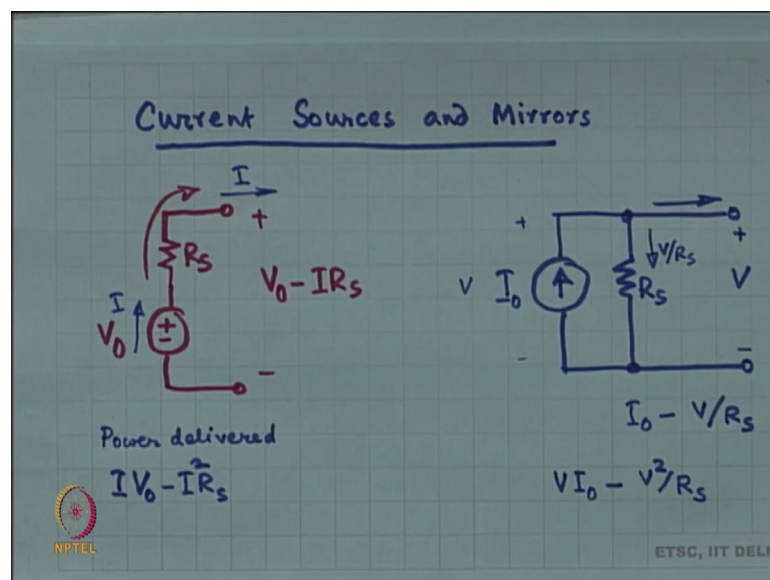 Current Sources and Mirrors
I
+
R_S
V_0 - IR_S
I
V_0
+
-
-
Power delivered
IV_0 - I²R_S
+
V
I_0
-
V/R_S
R_S
+
V
-
I_0 - V/R_S
VI_0 - V²/R_S
NPTEL
ETSC, IIT DELH